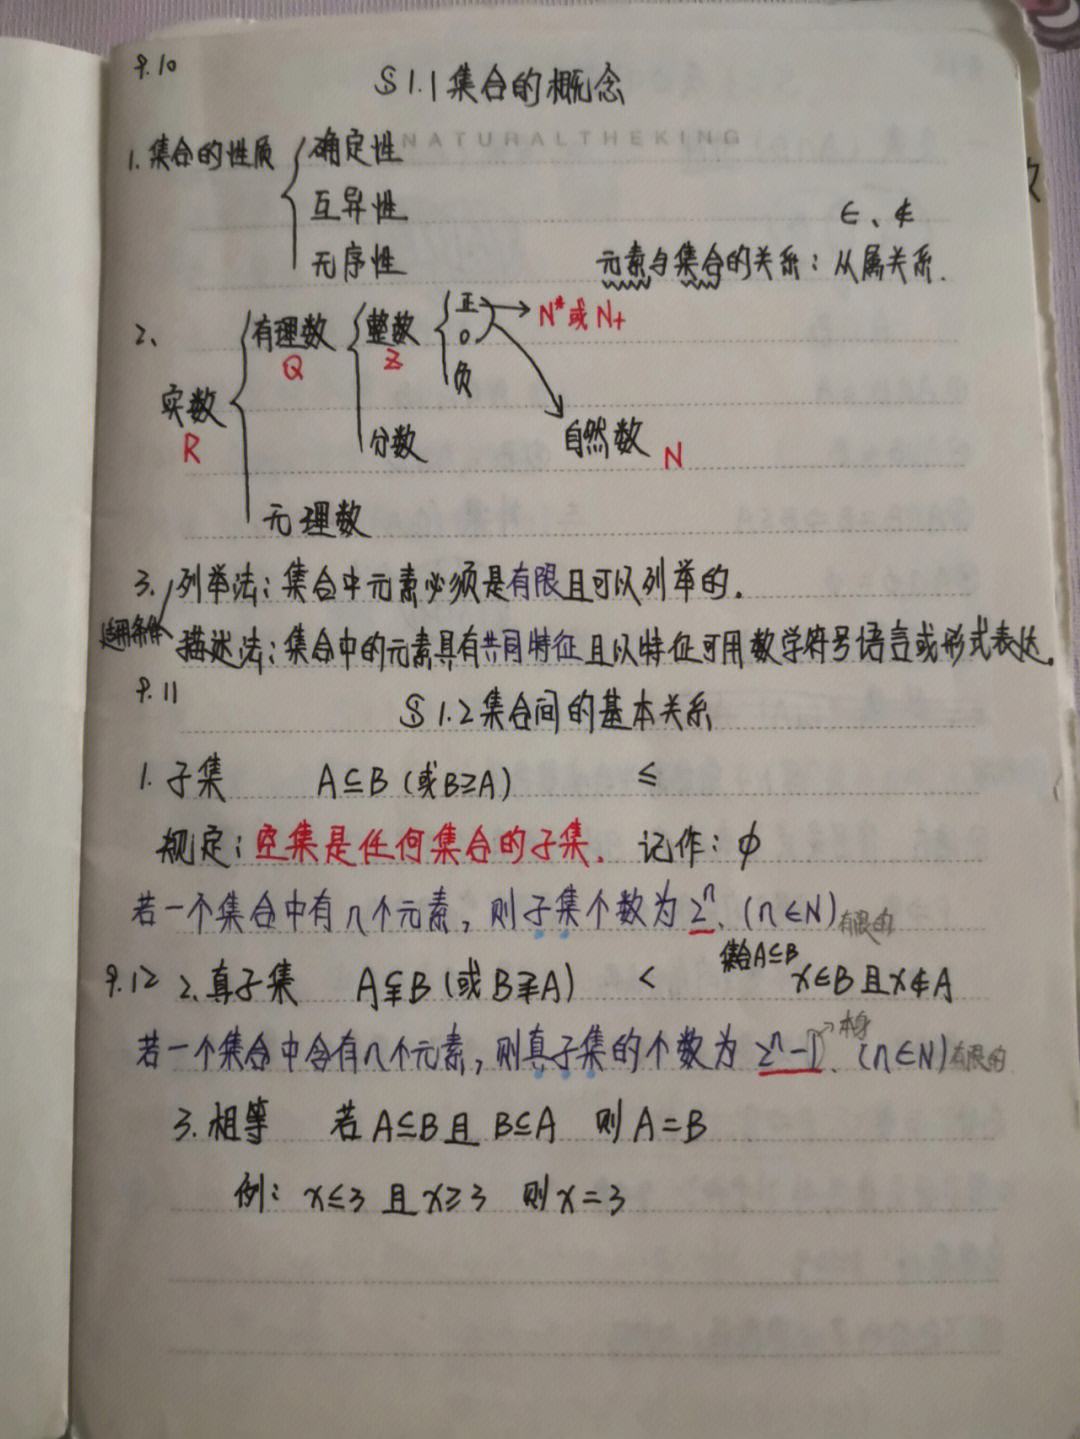 9.10
§1.1集合的概念
NATURALTHEKING
1.集合的性质 确定性
互异性
∈、∉
无序性
元素与集合的关系：从属关系.
2、 有理数 整数 正 N*或N+
Q Z 0
负
实数
R 分数 自然数 N
无理数
3. 列举法：集合中元素必须是有限且可以列举的.
适用条件 描述法：集合中的元素具有共同特征且以特征可用数学符号语言或形式表达.
9.11
§1.2集合间的基本关系
1.子集 A⊆B(或B⊇A) ≤
规定：空集是任何集合的子集. 记作：φ
若一个集合中有n个元素，则子集个数为2ⁿ.(n∈N)有限的
9.12 2.真子集 A⫋B(或B⫌A) < 集合A⊆B x∈B且x∉A
若一个集合中含有n个元素，则真子集的个数为2ⁿ-1→本身.(n∈N)有限的
3.相等 若A⊆B且B⊆A 则A=B
例：x≤3且x≥3 则x=3